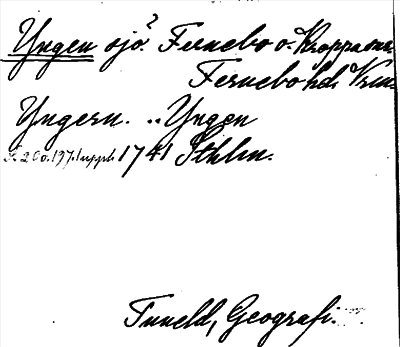 Yngen sjö? Fernebo o. Kroppa snr
Fernebo hd. Vrml.
Yngern. .. Yngen
s. 200. 197. 1 uppl. 1741 Sthlm.
Tuneld, Geografi.